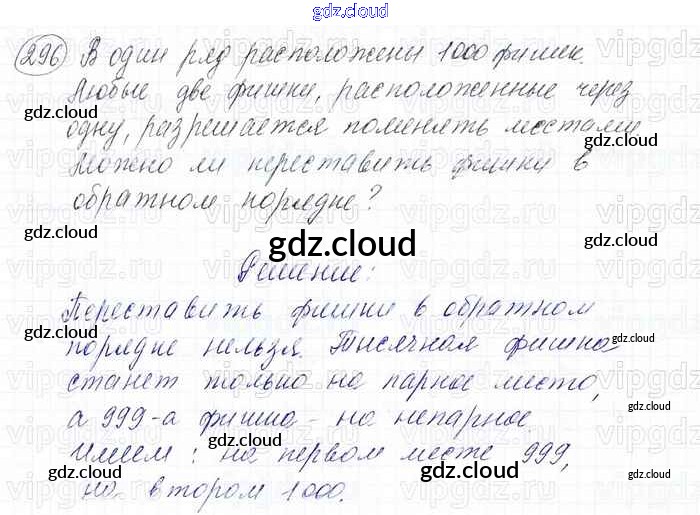 gdz.cloud
296 В один ряд расположены 1000 фишек.
Любые две фишки, расположенные через
одну, разрешается поменять местами.
Можно ли переставить фишки в
обратном порядке?
gdz.cloud
Решение:
Переставить фишки в обратном
порядке нельзя. Тысячная фишка
станет только на парное место,
а 999-а фишка - на непарное.
Имеем: на первом месте 999,
на втором 1000.
gdz.cloud
gdz.cloud
gdz.cloud
gdz.cloud
gdz.cloud
gdz.cloud
gdz.cloud
gdz.cloud
gdz.cloud
gdz.cloud
gdz.cloud